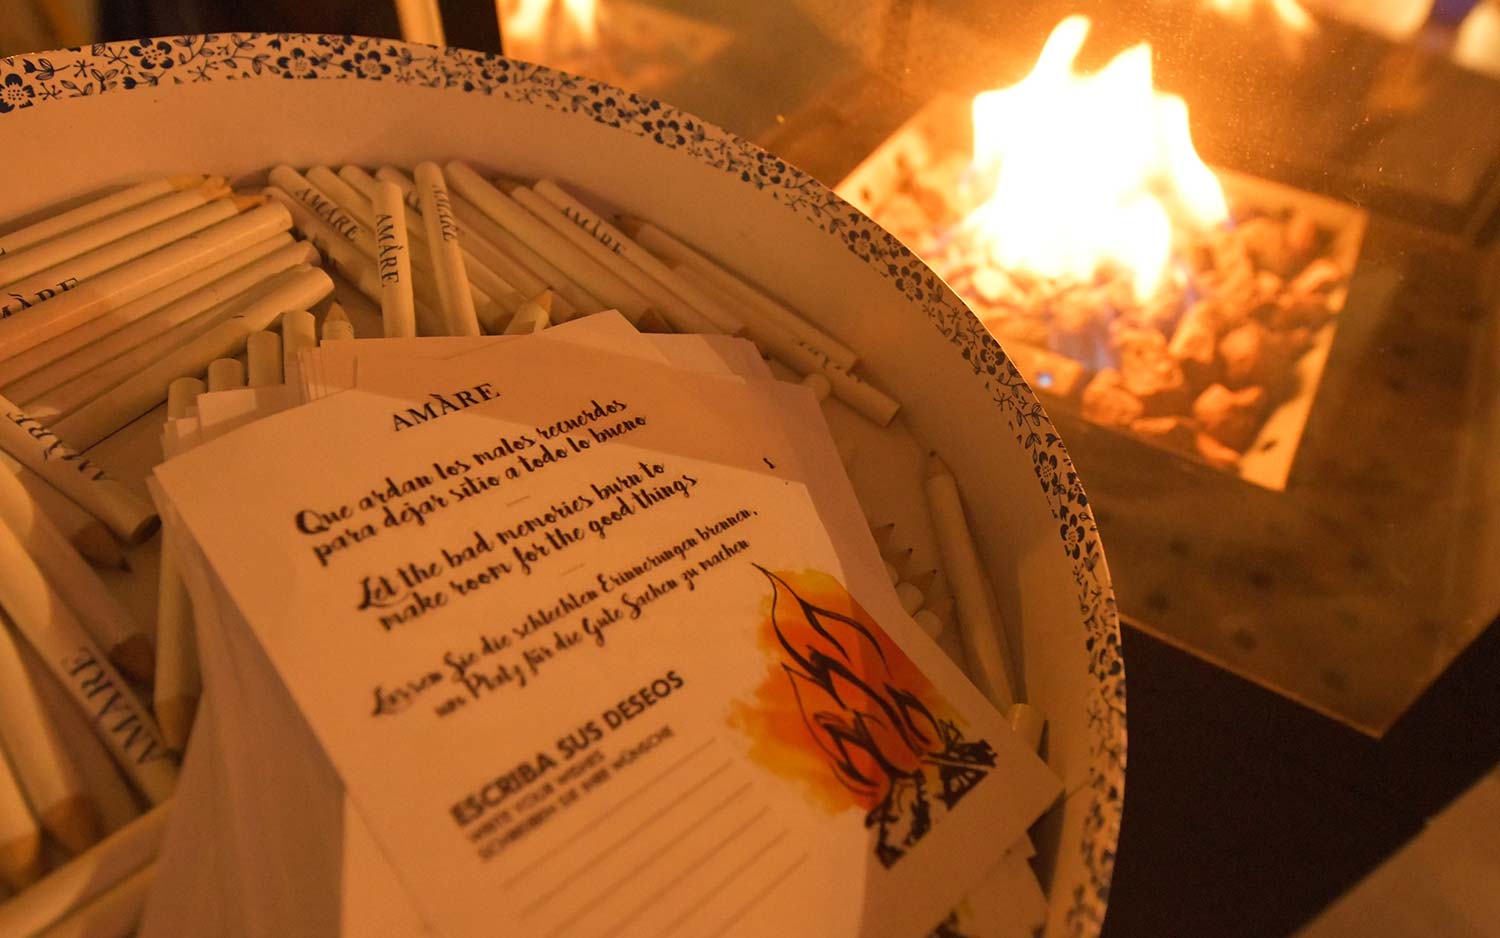 AMÀRE
AMÀRE
AMÀRE
AMÀRE
AMÀRE
AMÀRE
AMÀRE
AMÀRE
AMÀRE
Que ardan los malos recuerdos
para dejar sitio a todo lo bueno
Let the bad memories burn to
make room for the good things
Lassen Sie die schlechten Erinnerungen brennen,
um Platz für die Gute Sachen zu machen
ESCRIBA SUS DESEOS
WRITE YOUR WISHES
SCHREIBEN SIE IHRE WÜNSCHE
AMÀRE